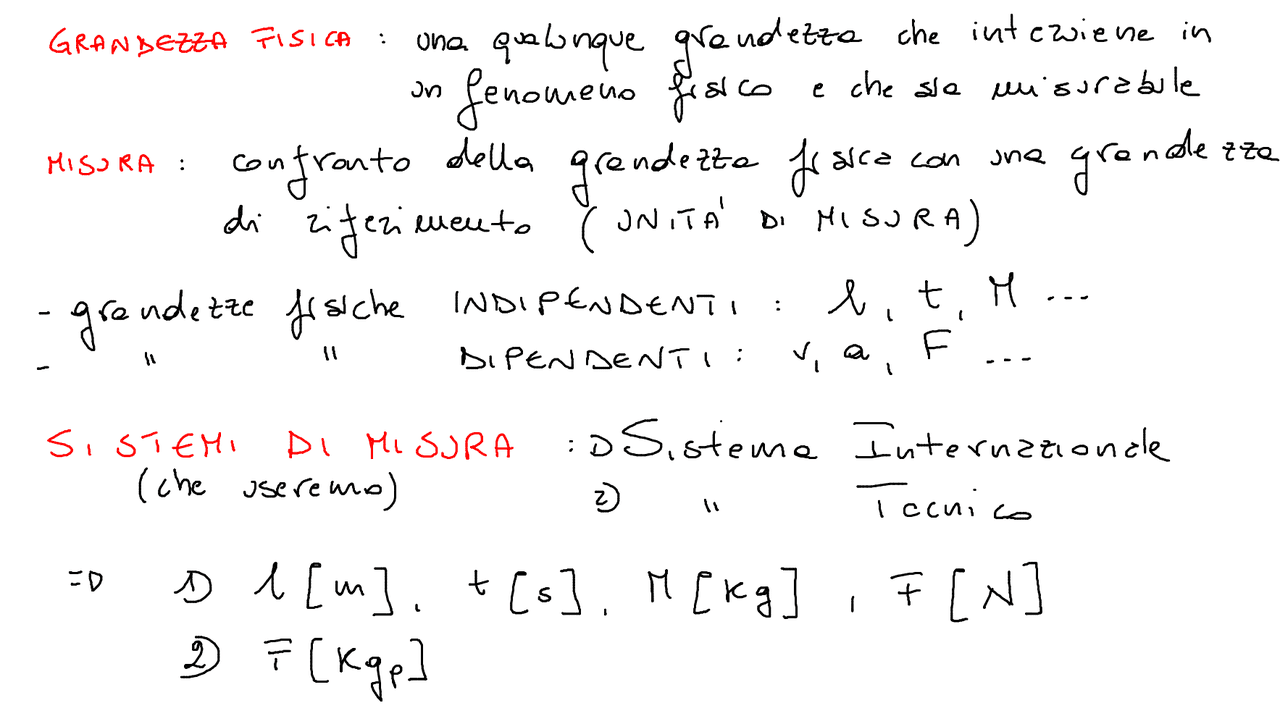 GRANDEZZA FISICA : una qualunque grandezza che interviene in
un fenomeno fisico e che sia misurabile
MISURA : confronto della grandezza fisica con una grandezza
di riferimento (UNITA' DI MISURA)
- grandezze fisiche INDIPENDENTI : l, t, M ...
- " " DIPENDENTI : v, a, F ...
SISTEMI DI MISURA : 1) Sistema Internazionale
(che useremo) 2) " Tecnico
=D 1) l [m], t [s], M [kg], F [N]
2) F [Kgp]